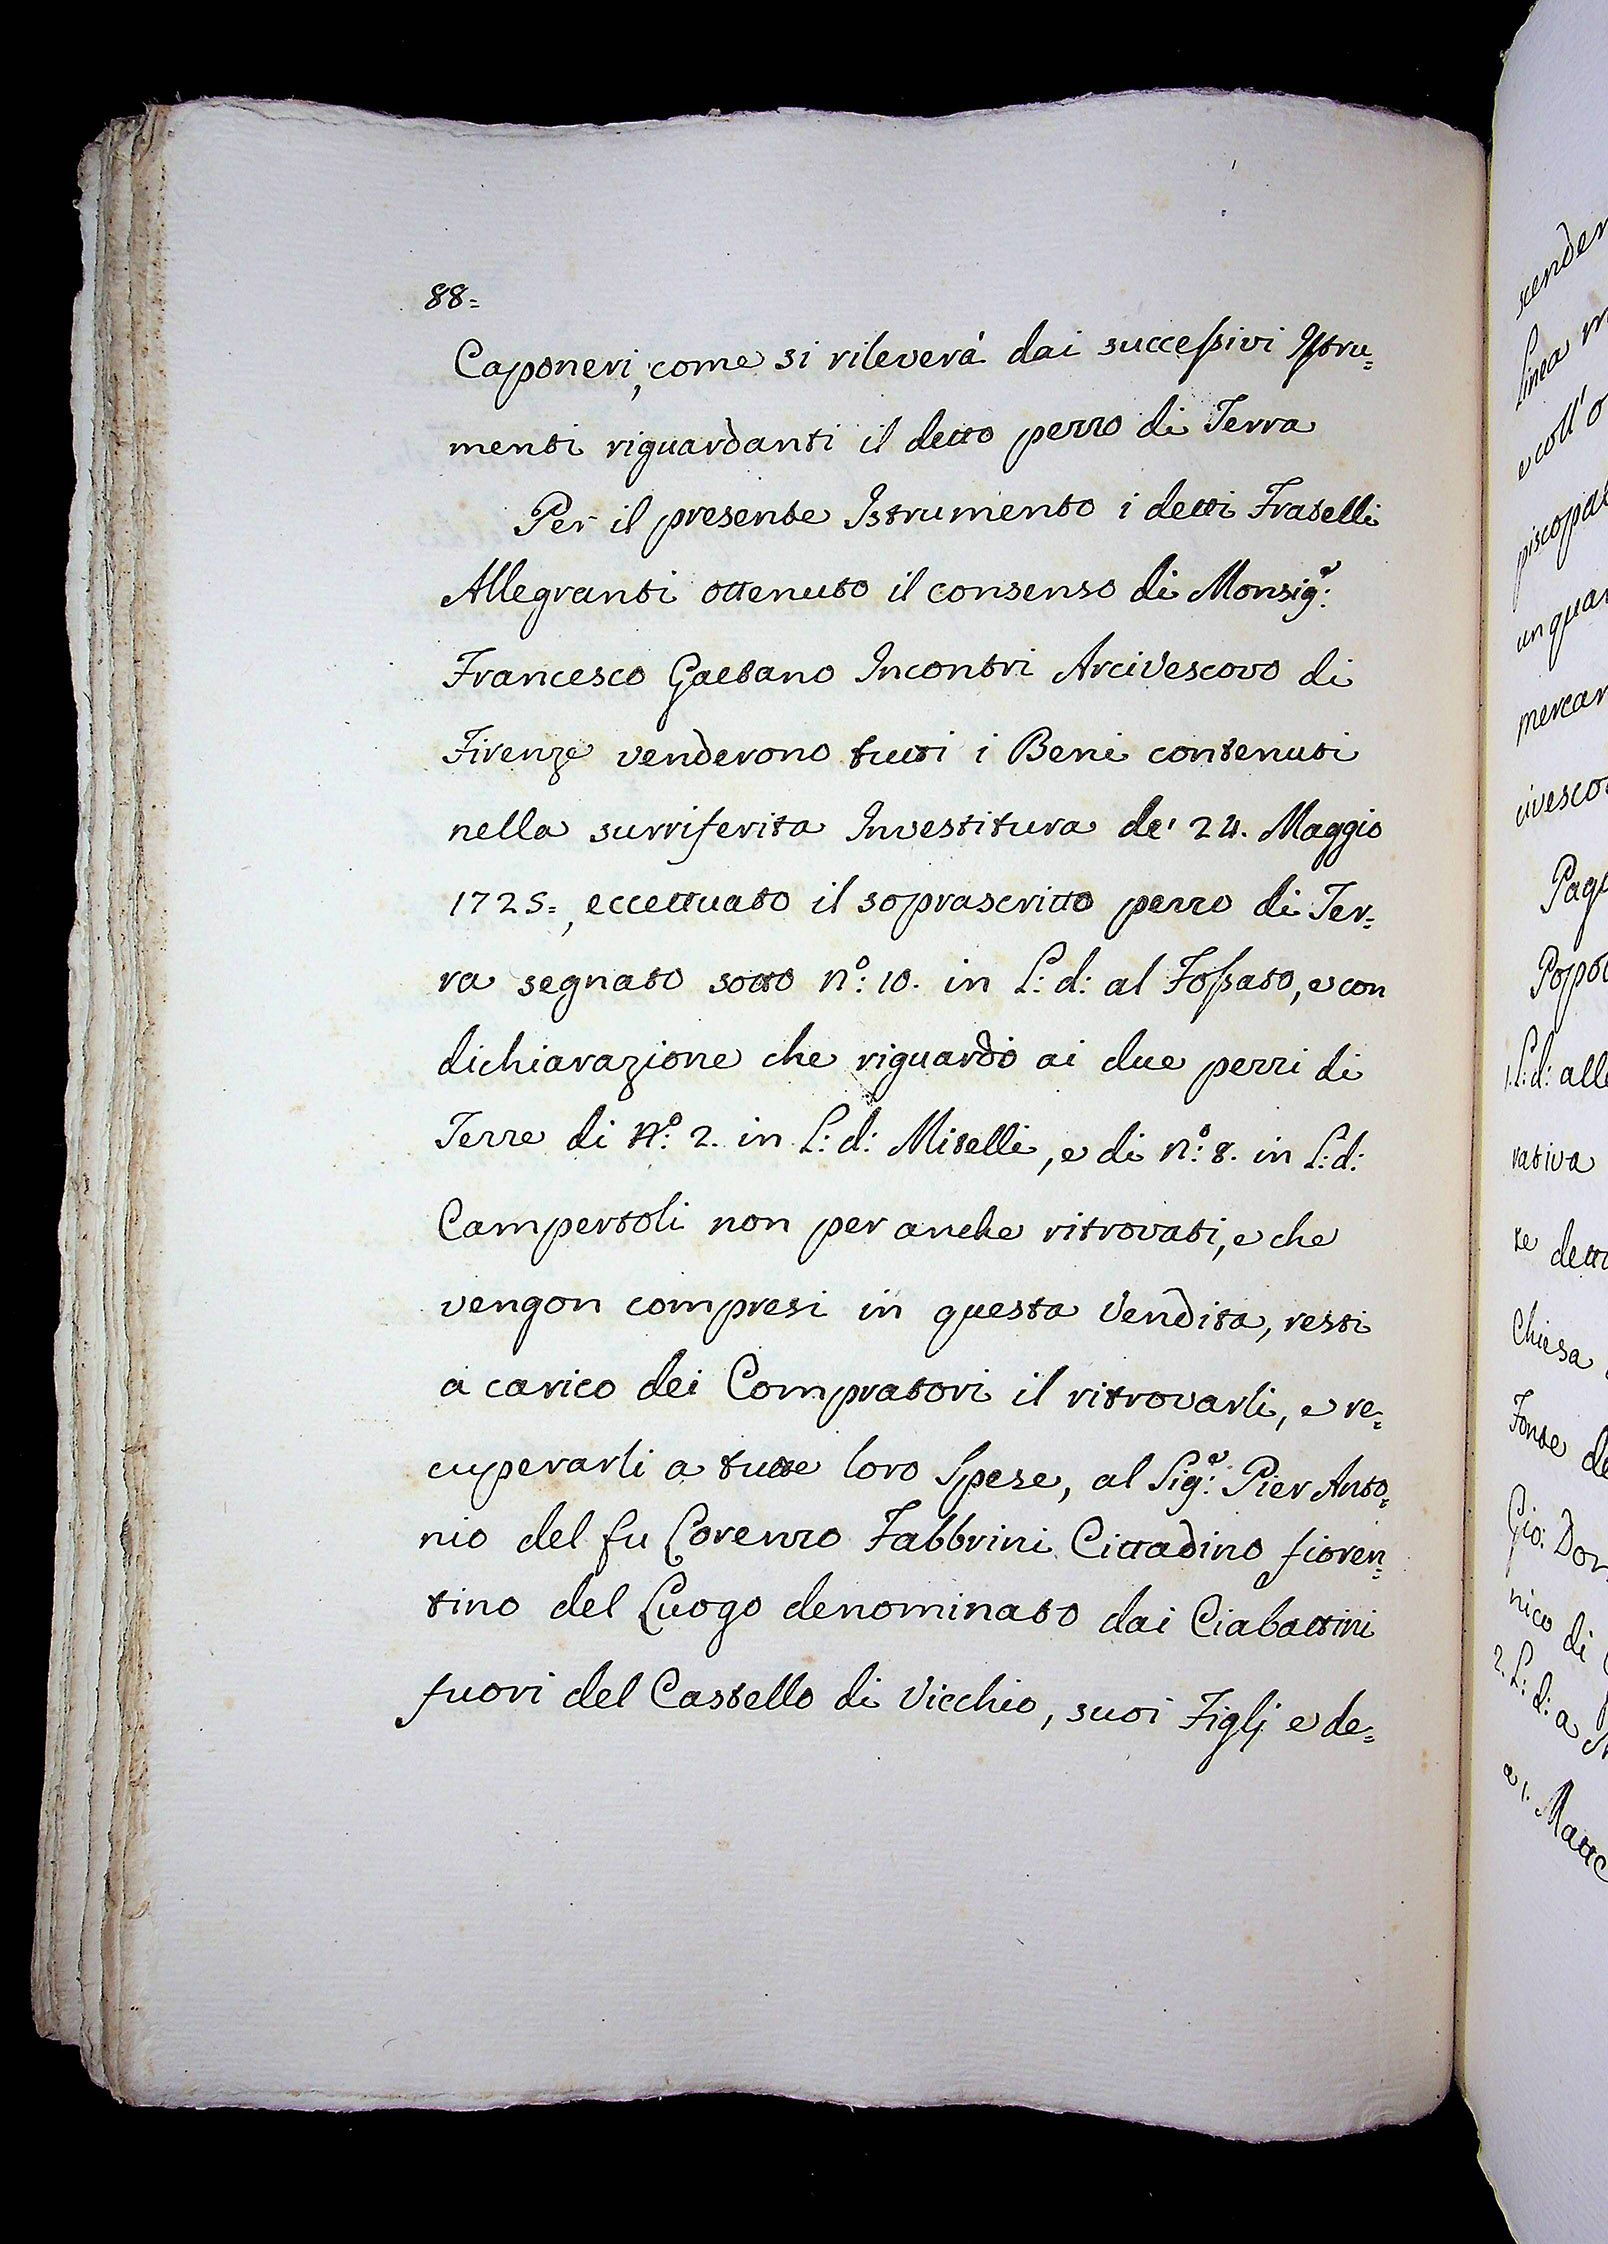 88=
Caponeri, come si rileverà dai successivi Istru=
menti riguardanti il detto pezzo di Terra
Per il presente Istrumento i detti Fratelli
Allegranti ottenuto il consenso di Monsig.r:
Francesco Gaetano Incontri Arcivescovo di
Firenze venderono tutti i Beni contenuti
nella surriferita Investitura de' 24. Maggio
1725=, eccettuato il soprascritto pezzo di Ter=
ra segnato sotto n.o: 10. in L: d: al Fossato, e con
dichiarazione che riguardo ai due pezzi di
Terre di N.o: 2. in L: d: Mitelli, e di n.o: 8. in L: d:
Campertoli non per anche ritrovati, e che
vengon compresi in questa Vendita, resti
a carico dei Compratori il ritrovarli, e re=
cuperarli a tutte loro Spese, al Sig.r: Pier Anto=
nio del fu Lorenzo Fabbrini Cittadino fioren=
tino del Luogo denominato dai Ciabattini
fuori del Castello di Vicchio, suoi Figlj e de=
scender
Linea m
e coll' o
piscopat
un quar
mercan
civesco
Pag
Popo
1. L: d: all
rativa
te dett
Chiesa
Fonte de
Gio: Dom
nico di
2. L: d: a
a 1. Matt